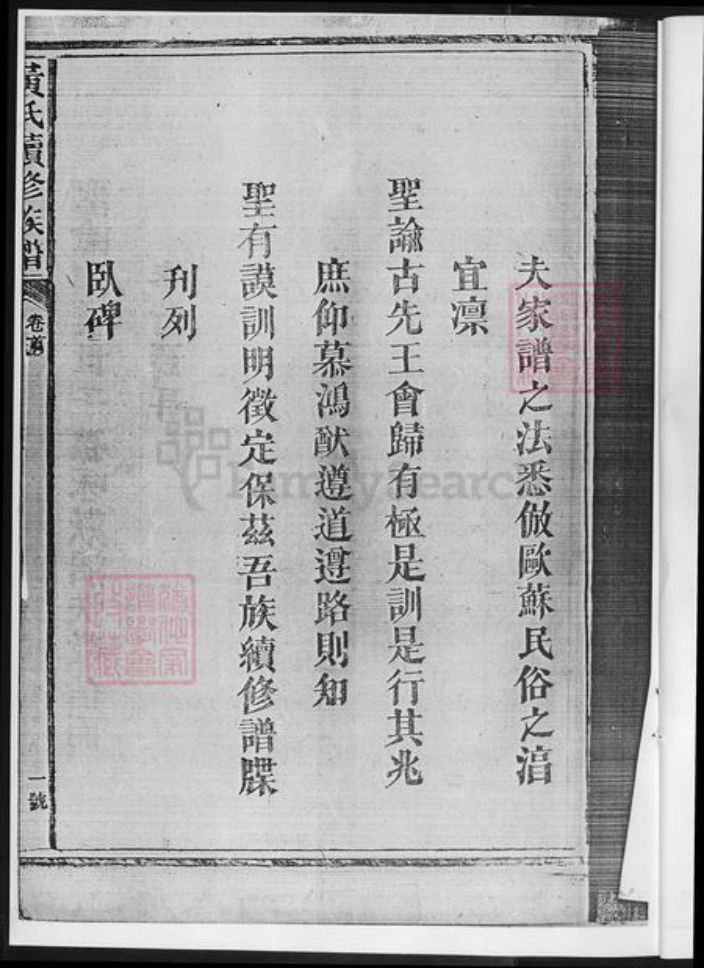 夫家譜之法悉倣歐蘇民俗之湻
宜凛
聖諭古先王會歸有極是訓是行其兆
庶仰慕鴻猷遵道遵路則知
聖有謨訓明徵定保茲吾族續修譜牒
刋列
臥碑
黃氏續修族譜
卷首
一號
FamilySearch